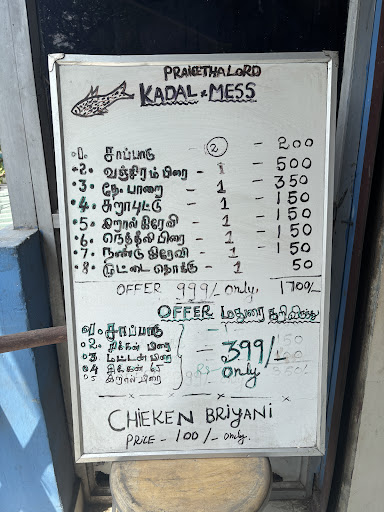 PRAISETHALORD
KADAL & MESS
1. சாப்பாடு - 2 - 200
2. வஞ்சிரம் பிரை - 1 - 500
3. தே. பாறை - 1 - 350
4. சுறாபுட்டு - 1 - 150
5. இறால் கிரேவி - 1 - 150
6. நெத்திலி பிரை - 1 - 150
7. நண்டு கிரேவி - 1 - 150
8. முட்டை தொக்கு - 1 50
OFFER 999/- only. 1700/-
OFFER மதுரை
1. சாப்பாடு
2. சிக்கன் பிரை
3. மட்டன் பிரை - 399/-
4. சிக்கன் 65 only.
5 இறால் பிரை
CHIEKEN BRIYANI
PRICE - 100/- only.